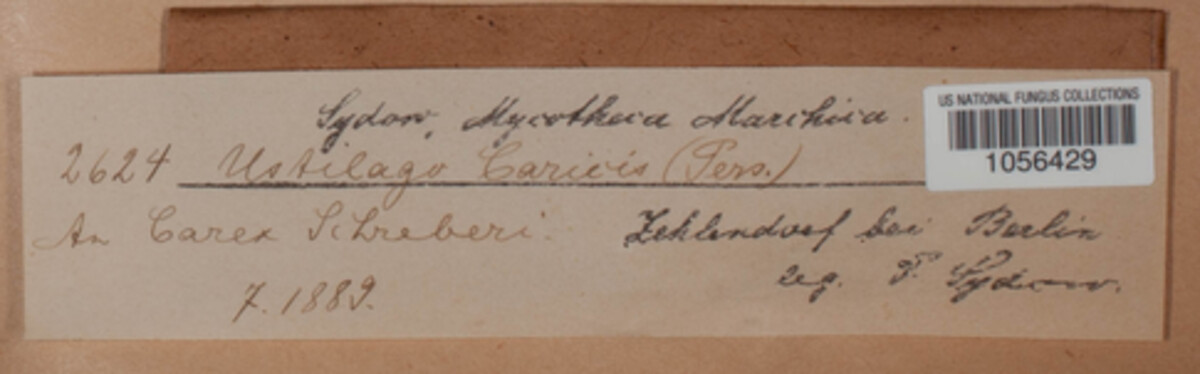 Sydow, Mycotheca Marchica.
US NATIONAL FUNGUS COLLECTIONS
1056429
2624 Ustilago Caricis (Pers.)
An Carex Schreberi.
Zehlendorf bei Berlin
7. 1889.
leg. P. Sydow.